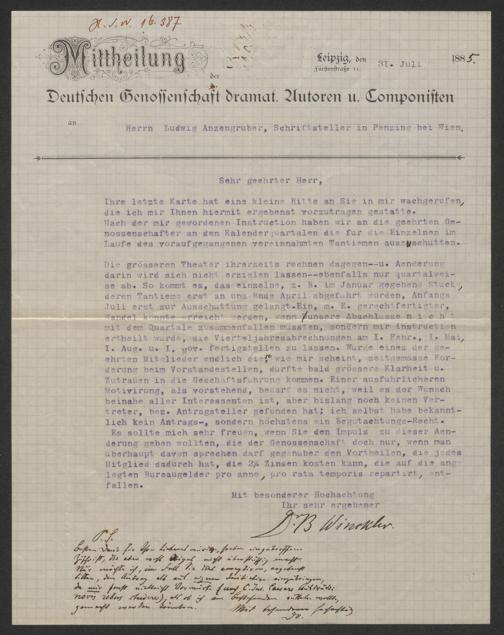 H. I. N. 16.387
Mittheilung
der
Leipzig, den 31. Juli 1885.
Deutschen Genossenschaft dramat. Autoren u. Componisten
an
Herrn Ludwig Anzengruber, Schriftsteller in Penzing bei Wien.
Sehr geehrter Herr,
Ihre letzte Karte hat eine kleine Bitte an Sie in mir wachgerufen,
die ich mir Ihnen hiermit ergebenst vorzutragen gestatte.
Nach der mir gewordenen Instruction haben wir an die geehrten Ge-
nossenschafter an den Kalenderquartalen die für die Einzelnen im
Laufe des voraufgegangenen vereinnahmten Tantiemen auszuschutten.
Die grösseren Theater ihrerseits rechnen dagegen--u. Aenderung
darin wird sich nicht erzielen lassen--ebenfalls nur quartalwei-
se ab. So kommt es, das einzelne, z. B. im Januar gegebene Stuck,
deren Tantieme erst an uns Ende April abgefuhrt worden, Anfangs
Juli erst zur Ausschuttung gelangt. Ein, m. E. gerechtfertigter,
Wandel konnte erreicht werden, wenn unsere Abschlusse n i c h t
mit dem Quartale zusammenfallen mussten, sondern mir Instruction
ertheilt wurde, die Vierteljahrsabrechnungen am 1. Febr., 1. Mai,
1. Aug. u. 1. Nov. fertigstellen zu lassen. Wurde eines der ge-
ehrten Mitglieder endlich die, wie mir scheint, zeitgemasse For-
derung beim Vorstande stellen, durfte bald grössere Klarheit u.
Zutrauen in die Geschaftsfuhrung kommen. Einer ausfuhrlicheren
Motivirung, als vorstehend, bedarf es nicht, weil es der Wunsch
beinahe aller Interessenten ist, aber bislang noch keinen Ver-
treter, bez. Antragsteller gefunden hat; ich selbst habe bekannt-
lich kein Antrags-, sondern höchstens ein Begutachtungs-Recht.
Es sollte mich sehr freuen, wenn Sie den Impuls zu dieser Aen-
derung geben wollten, die der Genossenschaft doch nur, wenn man
uberhaupt davon sprechen darf gegenuber den Vortheilen, die jedes
Mitglied dadurch hat, die 2% Zinsen kosten kann, die auf die ange-
legten Bureaugelder pro anno, pro rata temporis repartirt, ent-
fallen.
Mit besonderer Hochachtung
Ihr sehr ergebener
Dr B Winckler.
P. S.